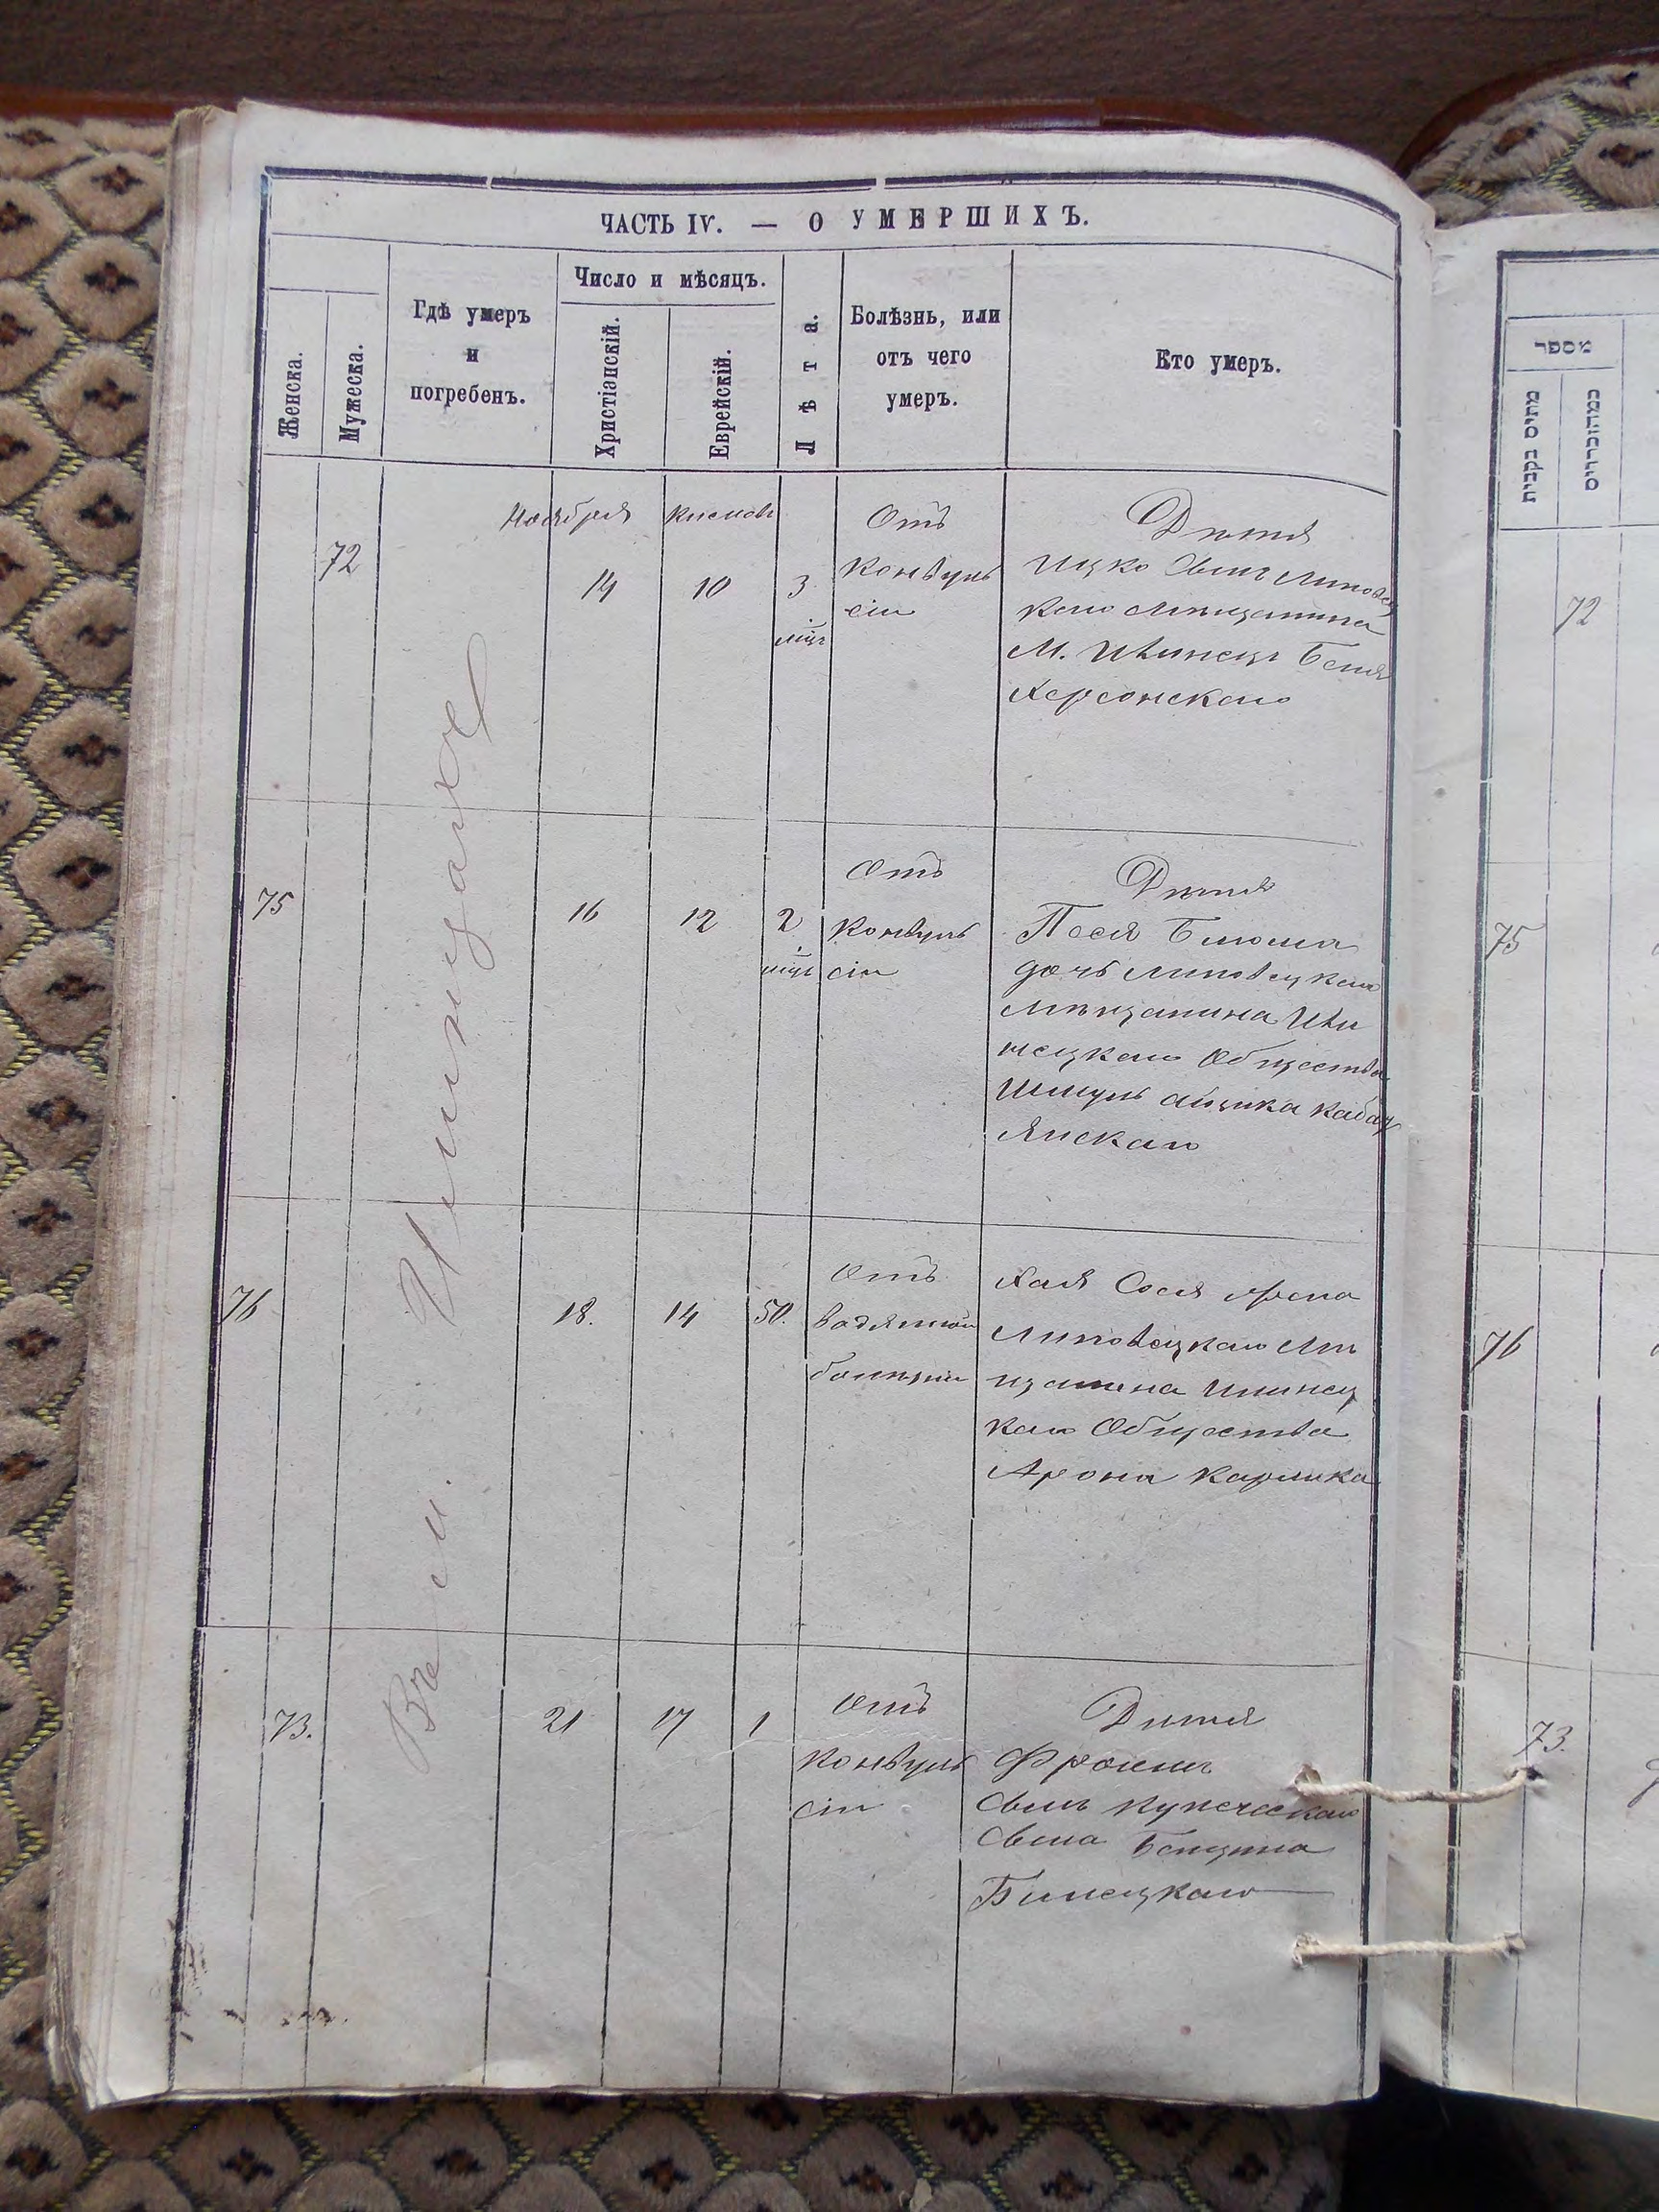 ЧАСТЬ IV. — О УМЕРШИХЪ.
Женска.
Мужеска.
Гдѣ умеръ
и
погребенъ.
Число и мѣсяцъ.
Христіанскій.
Еврейскій.
Лѣта.
Болѣзнь, или
отъ чего
умеръ.
Кто умеръ.
Ноября
72
14
10
3
мцъ
Отъ
Конвуль
сіи
Дитя
Ицко Сынъ Липовец
каго мѣщанина
М. Ильинецъ
Херсонскаго
75
16
12
2
мцъ
Отъ
Конвуль
сіи
Дитя
Песя Блюма
дочь Липовецкаго
мѣщанина Или
нецкаго Общества
Шмуль Айзика
янскаго
76
18.
14
50.
Отъ
водяной
болѣзни
Хая Сося жена
Липовецкаго мѣ
щанина Илинец
каго Общества
Арона Карлика
73.
21
17
1
Отъ
Конвуль
сіи
Дитя
Фроимъ
Сынъ купеческаго
Сына Бенциона
Билецкаго
Въ м. Илинцахъ
מספר
72
75
76
73.